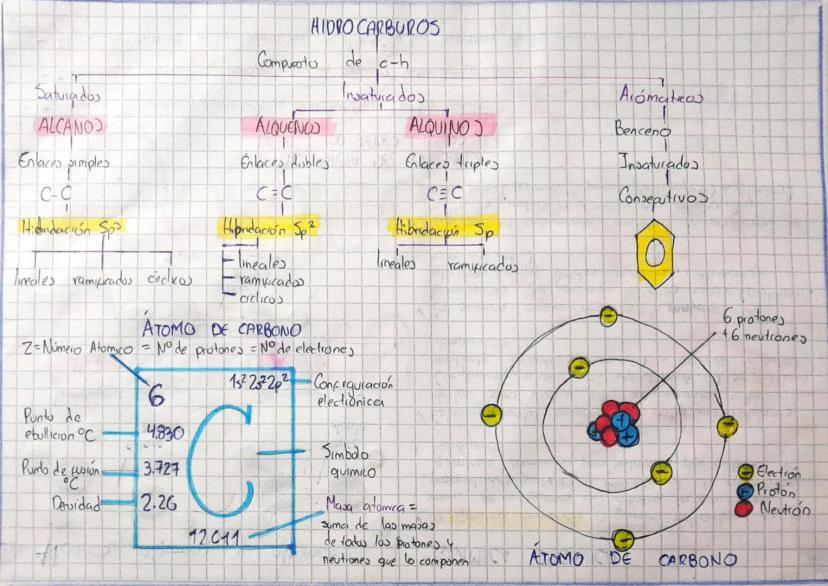 HIDROCARBUROS
Compuesto de c-h
Saturados
ALCANOS
Enlaces simples
C-C
Hibridación Sp³
lineales ramificados ciclicos
Insaturados
ALQUENOS
Enlaces dobles
C=C
Hibridación Sp²
lineales
ramificados
ciclicos
ALQUINOS
Enlaces triples
C≡C
Hibridación Sp
lineales ramificados
Arómaticos
Benceno
Insaturados
Consecutivos
ÁTOMO DE CARBONO
Z=Número Atomico = Nº de protones = Nº de electrones
6
1s² 2s² 2p²
Configuración
electrónica
Punto de
ebullicion ºC
4.830
Punto de fusión
ºC
3.727
Densidad
2.26
C
Símbolo
quimico
12 011
Masa atomica =
suma de las masas
de todos los protones y
neutrones que lo componen
6 protones
+6 neutrones
Electrón
Protón
Neutrón
ÁTOMO DE CARBONO